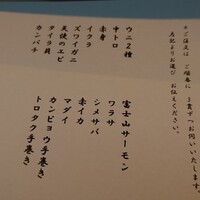 ※ご注文は ご順番に 2貫ずつお伺いいたします。
左記よりお選び お伝えください。
ウニ2種
中トロ
赤身
イクラ
ズワイガニ
天使のエビ
タイラ貝
カンパチ
富士山サーモン
ワラサ
シメサバ
赤イカ
マダイ
カンピョウ手巻き
トロタク手巻き